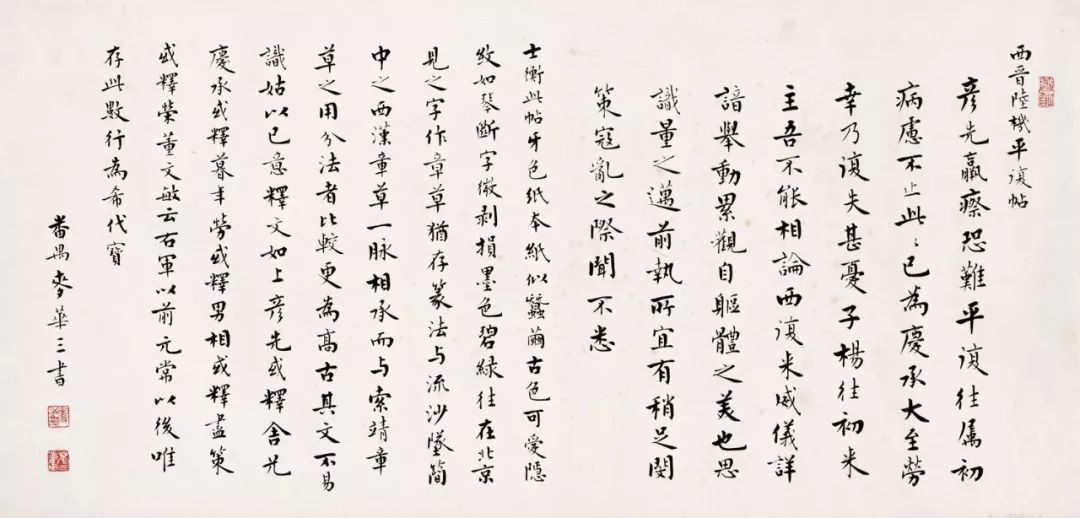 西晉陸機平復帖
彦先羸瘵恐難平復往属初
病慮不止此〻已為慶承大至勞
幸乃復失甚憂子楊往初来
主吾不能相論西復来威儀詳
諳舉動累觀自軀體之美也思
識量之邁前執所宜有稍足閔
策寇亂之際聞不悉
士衡此帖牙色紙本紙似蠶繭古色可愛隱
紋如琴斷字微剥損墨色碧緑往在北京
見之字作章草猶存篆法与流沙墜簡
中之西漢章草一脉相承而与索靖章
草之用分法者比較更為高古其文不易
識姑以已意釋文如上彦先或釋舍光
慶承或釋暮年勞或釋男相或釋盡策
或釋榮董文敏云右軍以前元常以後唯
存此數行為希代寶
番禺麥華三書